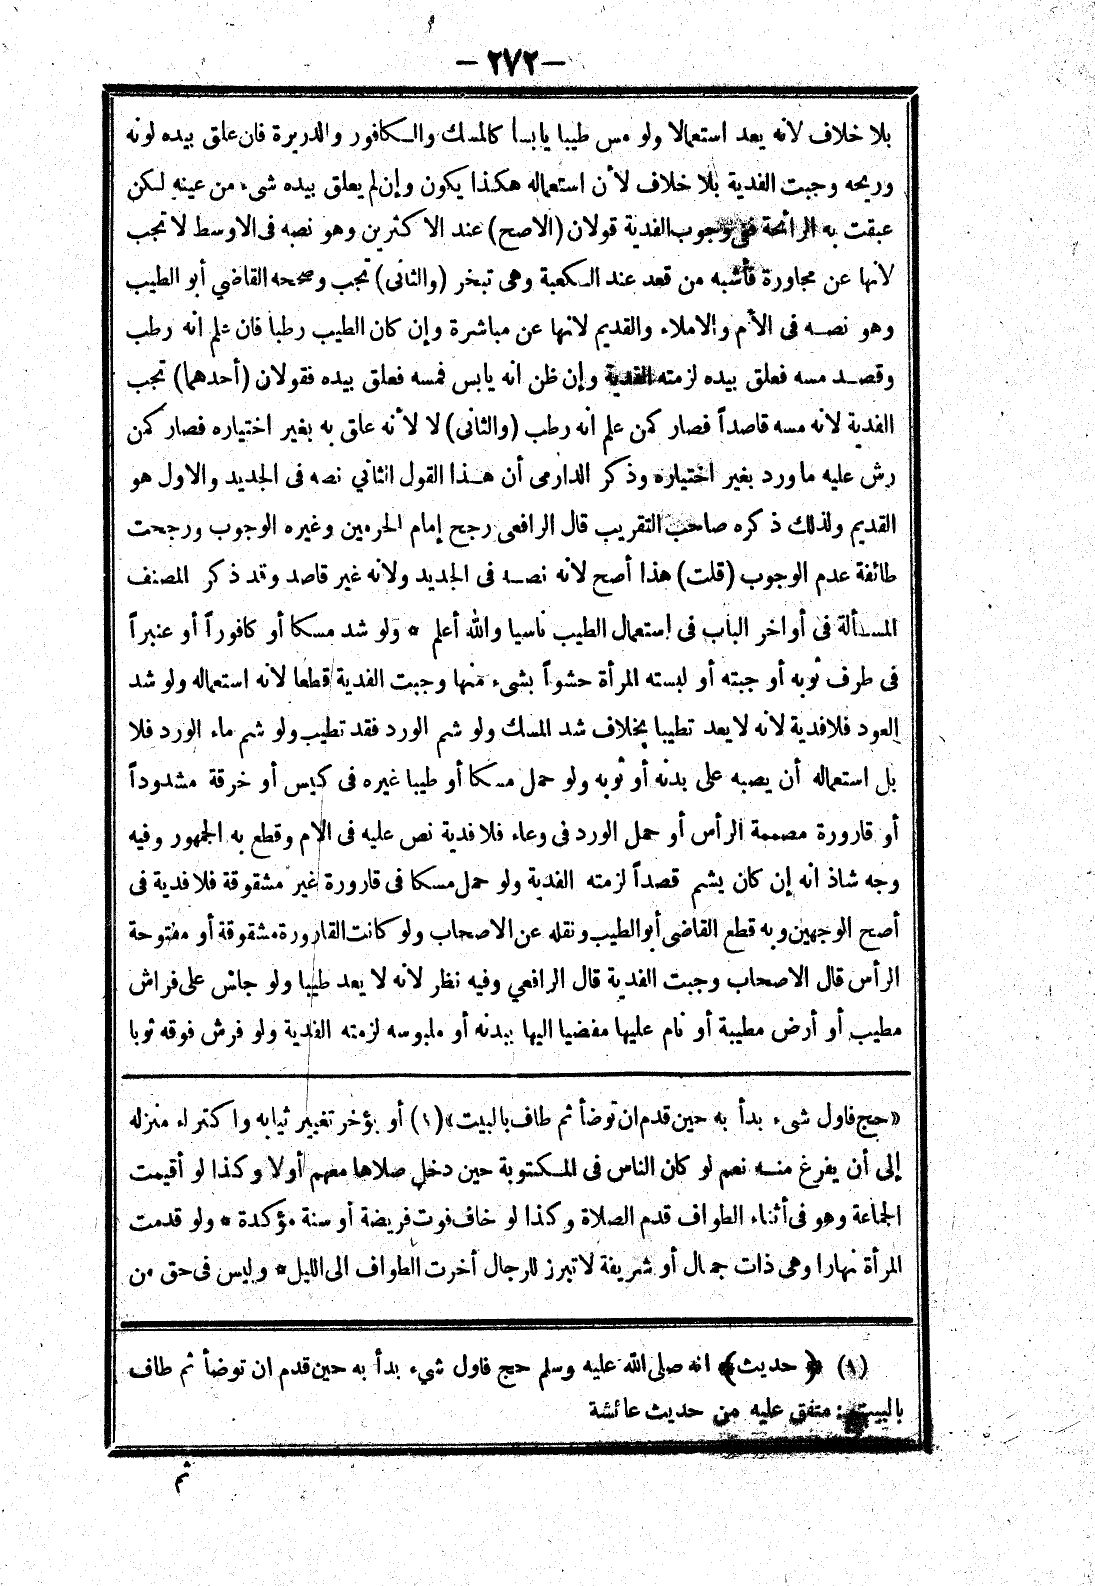 — ٢٧٢ —
بلا خلاف لانه يعد استعمالا ولو مس طيبا يابسا كالمسك والكافور والذريرة فان علق بيده لونه
وريحه وجبت الفدية بلا خلاف لأن استعماله هكذا يكون وإن لم يعلق بيده شىء من عينه لكن
عبقت به الرائحة ففي وجوب الفدية قولان (الاصح) عند الاكثرين وهو نصه فى الاوسط لا تجب
لانها عن مجاورة فأشبه من قعد عند الكعبة وهى تبخر (والثانى) تجب وصححه القاضي أبو الطيب
وهو نصه فى الأم والاملاء والقديم لانها عن مباشرة وإن كان الطيب رطبا فان علم انه رطب
وقصد مسه فعلق بيده لزمته الفدية وإن ظن انه يابس فمسه فعلق بيده فقولان (أحدهما) تجب
الفدية لانه مسه قاصداً فصار كمن علم انه رطب (والثانى) لا لأنه علق به بغير اختياره فصار كمن
رش عليه ماورد بغير اختياره وذكر الدارمى أن هذا القول الثاني نصه فى الجديد والاول هو
القديم ولذلك ذكره صاحب التقريب قال الرافعى رجح إمام الحرمين وغيره الوجوب ورجحت
طائفة عدم الوجوب (قلت) هذا أصح لانه نصه فى الجديد ولانه غير قاصد وقد ذكر المصنف
المسألة فى أواخر الباب فى استعمال الطيب ناسيا والله أعلم * ولو شد مسكا أو كافوراً أو عنبراً
فى طرف ثوبه أو جبته أو لبسته المرأة حشواً بشىء منها وجبت الفدية قطعا لانه استعماله ولو شد
العود فلا فدية لانه لا يعد تطيبا بخلاف شد المسك ولو شم الورد فقد تطيب ولو شم ماء الورد فلا
بل استعماله أن يصبه على بدنه أو ثوبه ولو حمل مسكا أو طيبا غيره فى كيس أو خرقة مشدوداً
أو قارورة مصممة الرأس أو حمل الورد فى وعاء فلا فدية نص عليه فى الام وقطع به الجمهور وفيه
وجه شاذ انه إن كان يشم قصداً لزمته الفدية ولو حمل مسكا فى قارورة غير مشقوقة فلا فدية فى
أصح الوجهين وبه قطع القاضى أبو الطيب ونقله عن الاصحاب ولو كانت القارورة مشقوقة أو مفتوحة
الرأس قال الاصحاب وجبت الفدية قال الرافعي وفيه نظر لانه لا يعد طيبا ولو جلس على فراش
مطيب أو أرض مطيبة أو نام عليها مفضيا اليها ببدنه أو ملبوسه لزمته الفدية ولو فرش فوقه ثوبا
«حج فاول شىء بدأ به حين قدم ان توضأ ثم طاف بالبيت» (١) أو يؤخر تغيير ثيابه واكتراء منزله
إلى أن يفرغ منه نعم لو كان الناس فى المكتوبة حين دخل صلاها معهم أولا وكذا لو أقيمت
الجماعة وهو فى أثناء الطواف قدم الصلاة وكذا لو خاف فوت فريضة أو سنة مؤكدة * ولو قدمت
المرأة نهارا وهى ذات جمال أو شريفة لا تبرز للرجال أخرت الطواف الى الليل * وليس فى حق من
(١) ﴿حديث﴾ انه صلى الله عليه وسلم حج فاول شيء بدأ به حين قدم ان توضأ ثم طاف
بالبيت: متفق عليه من حديث عائشة
ثم